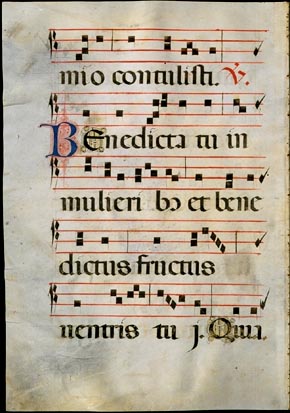 mio contulisti. V.
BEnedicta tu in
mulieri bɔ et bene
dictus fructus
uentris tu j. Quia.